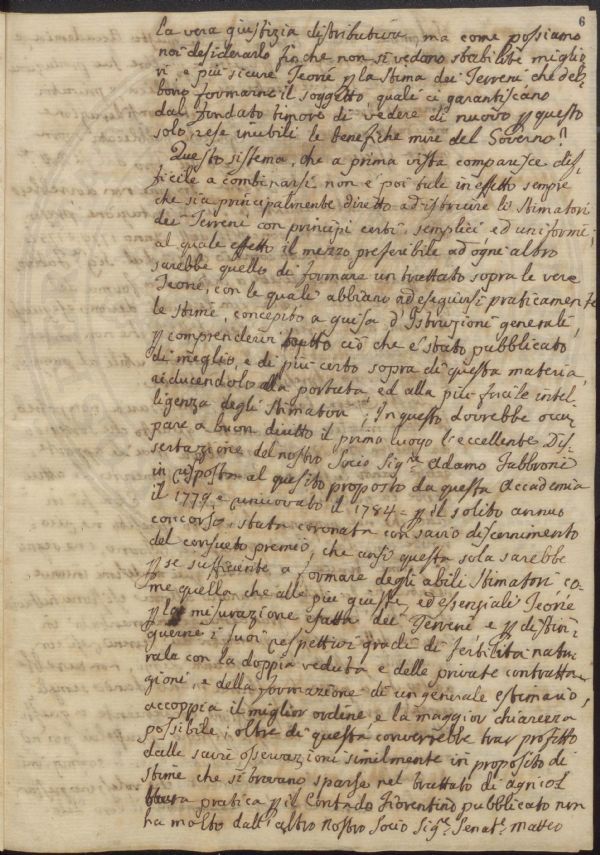 6
la vera giustizia distributiva, ma come possiamo
noi desiderarlo finche non si vedano stabilite miglio
ri, e più sicure Teorie p la stima dei Terreni che deb=
bono formarne il soggetto, quali ci garantiscano
dal fondato timore di vedere di nuovo p questo
solo rese inutili le benefiche mire del Governo?
Questo sistema, che a prima vista comparisce dif=
ficile a combinarsi non è poi tale in effetto sempre
che sia principalmente diretto ad istruire li Stimatori
dei Terreni con principi certi semplici ed uniformi;
al quale effetto il mezzo preferibile ad ogni altro
sarebbe quello di formare un trattato sopra le vere
Teorie, con le quali abbiano ad eseguirsi praticamente
le stime, concepito a guisa d'Istruzioni generali,
p comprendervi tutto ciò che è stato pubblicato
di meglio, e di più certo sopra di questa materia,
riducendolo alla portata, ed alla più facile intel=
ligenza degli Stimatori; In questo dovrebbe occu=
pare a buon diritto il primo luogo l'eccellente Dis=
sertazione del nostro Socio Sig.re Adamo Fabbroni
in risposta al quesito proposto da questa Accademia
il 1779, e rinnovato il 1784 = p il solito annuo
concorso, stata coronata con savio discernimento
del consueto premio, che anzi questa sola sarebbe
p se sufficiente a formare degli abili Stimatori co=
me quella, che alle più giuste, ed essenziali Teorie
p la misurazione esatta dei Terreni e p distin=
guerne i suoi respettivi gradi di fertilità natu=
rale con la doppia veduta e delle private contratta=
zioni, e della formazione di un generale estimario,
accoppia il miglior ordine, e la maggior chiarezza
possibile; oltre di questa converrebbe trar profitto
dalle savie osservazioni similmente in proposito di
stime che si trovano sparse nel trattato di agricol
tura pratica p il Contado Fiorentino pubblicato non
ha molto dall'altro nostro Socio Sig.r Senat.e Matteo